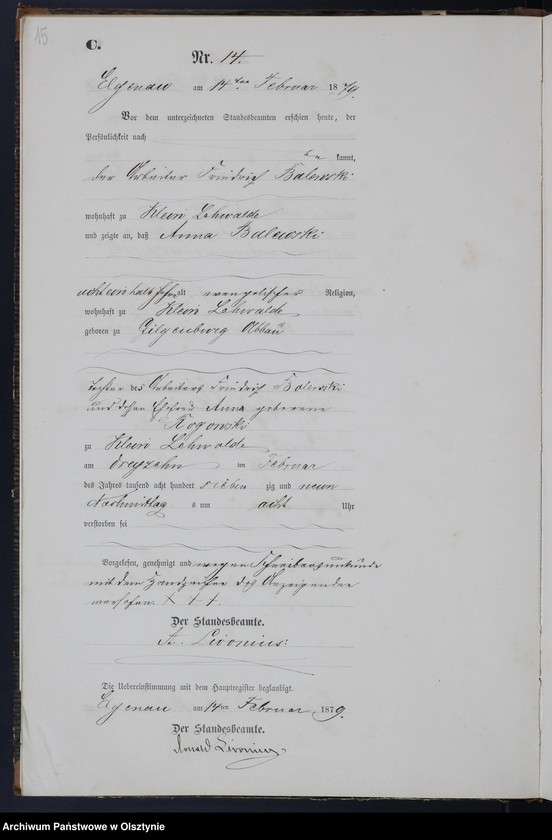 15
C.
Nr. 14.
Elgenau am 14ten Februar 1879.
Vor dem unterzeichneten Standesbeamten erschien heute, der
Persönlichkeit nach
kannt,
der Arbeiter Friedrich Balewski
wohnhaft zu Klein Lehwalde
und zeigte an, daß Anna Balewski
achteinhalb Jahr alt evangelischer Religion,
wohnhaft zu Klein Lehwalde
geboren zu Gilgenburg Abbau
Tochter des Arbeiters Friedrich Balewski
und dessen Ehefrau Anna geborene
Rogowski
zu Klein Lehwalde
am dreyzehn im Februar
des Jahres tausend acht hundert sieben zig und neun
Nachmittag s um acht Uhr
verstorben sei
Vorgelesen, genehmigt und wegen Schreibensunkunde
mit dem Handzeichen des Anzeigenden
versehen. + + +.
Der Standesbeamte.
A. Livonius.
Die Uebereinstimmung mit dem Hauptregister beglaubigt.
Elgenau am 14ten Februar 1879.
Der Standesbeamte.
Arnold Livonius
Archiwum Państwowe w Olsztynie